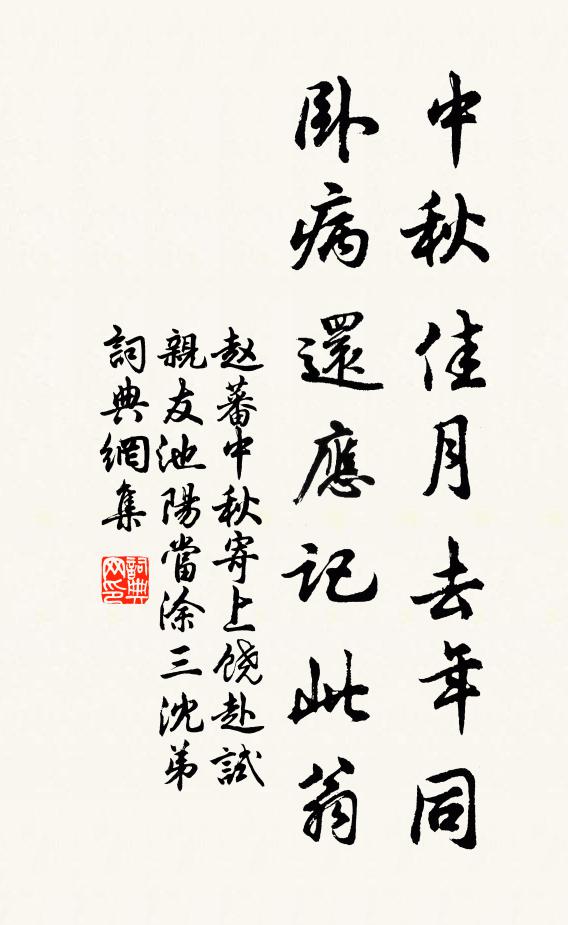 中秋佳月去年同
卧病還應記此翁
赵蕃中秋寄上饶赴試
親友池陽當涂三沈弟
詞典網集
詞典網印